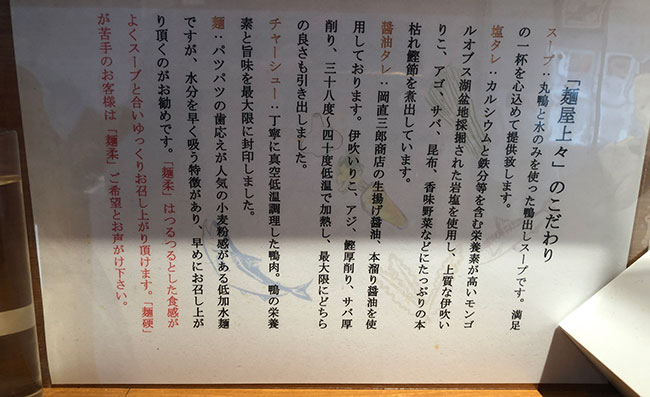 「麺屋上々」のこだわり
スープ：丸鴨と水のみを使った鴨出しスープです。満足
の一杯を心込めて提供致します。
塩タレ：カルシウムと鉄分等を含む栄養素が高いモンゴ
ルオブス湖盆地採掘された岩塩を使用し、上質な伊吹い
りこ、アゴ、サバ、昆布、香味野菜などにたっぷりの本
枯れ鰹節を煮出しています。
醤油タレ：岡直三郎商店の生揚げ醤油、本溜り醤油を使
用しております。伊吹いりこ、アジ、鰹厚削り、サバ厚
削り、三十八度～四十度低温で加熱し、最大限にどちら
の良さも引き出しました。
チャーシュー：丁寧に真空低温調理した鴨肉。鴨の栄養
素と旨味を最大限に封印しました。
麺：パツパツの歯応えが人気の小麦粉感がある低加水麺
ですが、水分を早く吸う特徴があり、早めにお召し上が
り頂くのがお勧めです。「麺柔」はつるつるとした食感が
よくスープと合いゆっくりお召し上がり頂けます。「麺硬」
が苦手のお客様は「麺柔」ご希望とお声がけ下さい。